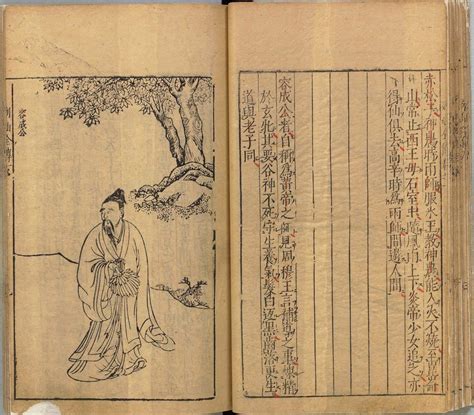 赤松子神農時雨師服水玉教神農能入火不燒至崑崙
山常止西王母石室中隨風雨上下炎帝少女追之亦
得仙俱去高辛時為雨師間遊人間
容成公者自稱為黃帝之師見周穆王言補導之事精
於玄牝其要谷神不死守生養氣髮白復黑齒落更生
道與老子同
容成公